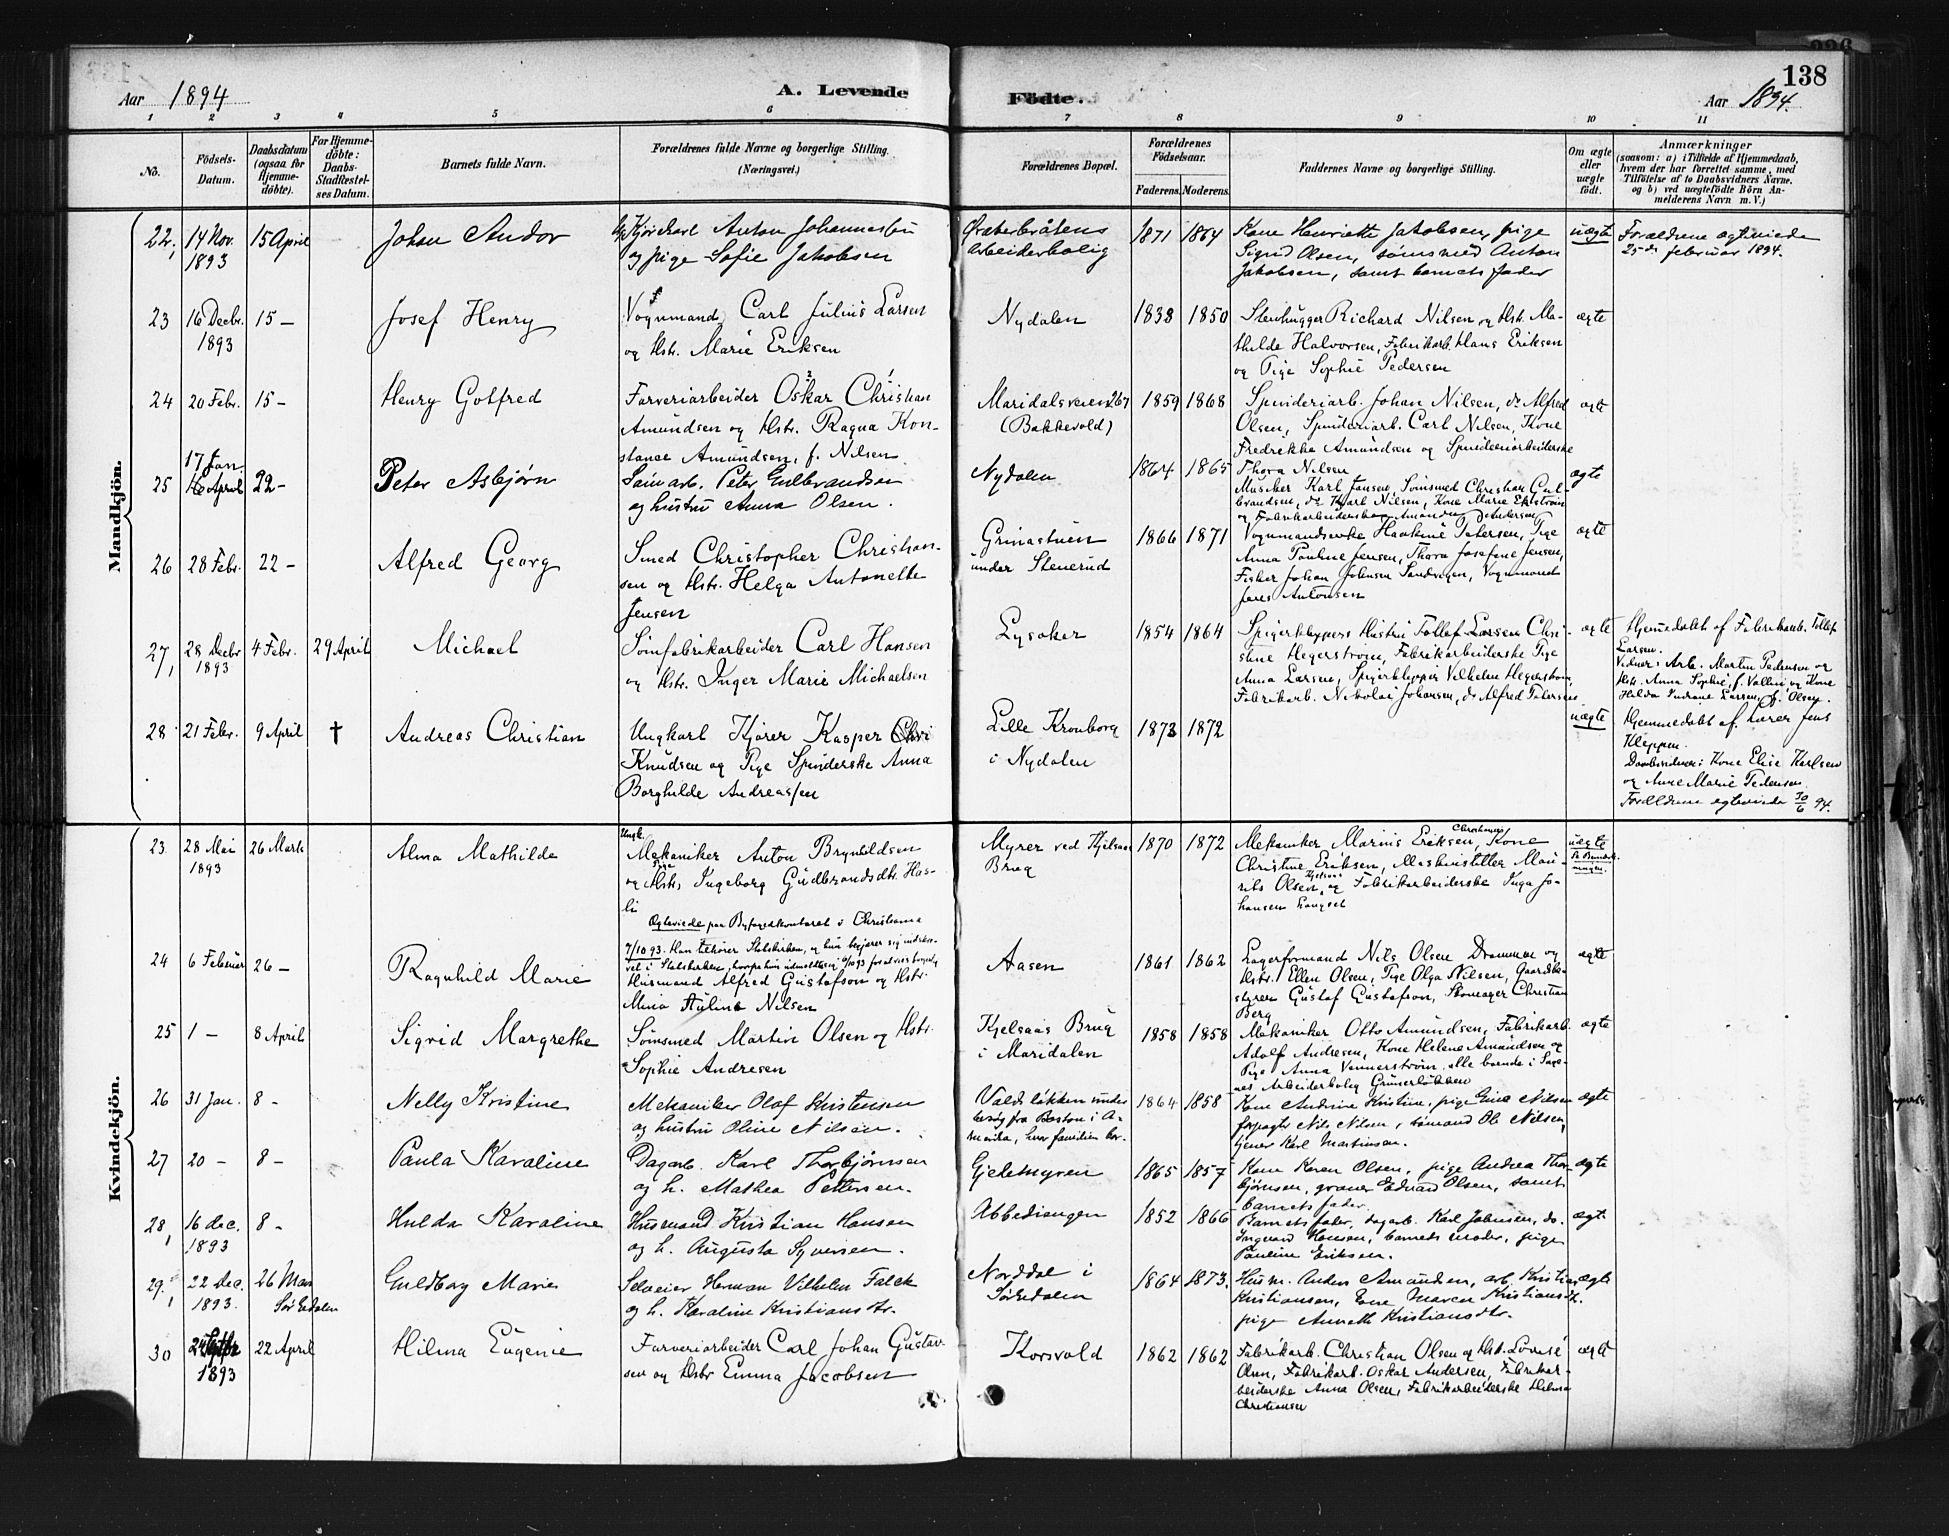 138
Aar 1894 A. Levende Födte. Aar 1894.
1 2 3 4 5 6 7 8 9 10 11
No.
Födsels-Datum.
Daabsdatum (ogsaa for Hjemme-döbte).
For Hjemme-döbte: Daabs-Stadfæstel-ses Datum.
Barnets fulde Navn.
Forældrenes fulde Navne og borgerlige Stilling.
(Næringsvei.)
Forældrenes Bopæl.
Forældrenes Födselsaar.
Faderens. Moderens.
Faddernes Navne og borgerlige Stilling.
Om ægte eller uægte födt.
Anmærkninger
(saasom: a) i Tilfælde af Hjemmedaab, hvem der har forrettet samme, med Tilföielse af to Daabsvidners Navne, og b) ved uægtefödte Börn An-melderens Navn m. V.)
Mandkjön.
22, 14 Nov. 1893 15 April Johan Andor
Kjørekarl Anton Johannesen
og pige Sofie Jakobsen
Arbeiderbolig
1871 1864
Kone Henriette Jakobsen, pige
Sigrid Olsen, sømsmed Anton
Jakobsen, samt barnets fader
uægte
Forældrene ægteviede
25de februar 1894.
23 16 Decbr. 1893 15 – Josef Henry
Vognmand Carl Julius Larsen
og Hstr. Marie Eriksen
Nydalen 1838 1850
Stenhugger Richard Nilsen og Hstr. Ma-
thilde Halvorsen, Fabrikarb. Hans Eriksen
og Pige Sophie Pedersen
ægte
24 20 Febr. 15 – Henry Gotfred
Farveriarbeider Oskar Christian
Amundsen og Hstr. Ragna Kon-
stance Amundsen, f. Nilsen
Maridalsveien 267
(Bakkevold)
1859 1868
Spinderiarb. Johan Nilsen, do Alfred
Olsen, Spinderiarb. Carl Nilsen, Kone
Fredrikke Amundsen og Spinderiarbeiderske
Thora Nilsen
ægte
25 17 Jan. 22 – Peter Asbjørn
Sømarb. Peter Gulbrandsen
og hustru Anna Olsen.
Nydalen 1864 1865
Musiker Karl Jansen, Sømsmed Christian Gul-
brandsen, do Karl Nilsen, Kone Marie Ekstrøm
og Fabrikarbeiderske Amanda Andersen
ægte
26 28 Febr. 22 – Alfred Georg
Smed Christopher Christian-
sen og Hstr. Helga Antonette
Jensen
Grinastuen
under Stenerud
1866 1871
Vognmandsenke Haakine Petersen, Pige
Anna Pauline Jensen, Thora Josefine Jensen,
Fisker Johan Johnsen Sandvigen, Vognmand
Jens Antonsen
ægte
27, 28 Decbr 1893 4 Febr. 29 April Michael
Sømfabrikarbeider Carl Hansen
og Hstr. Inger Marie Michaelsen
Lysaker 1854 1864
Spigerklippers Hustru Tollef Larsen Chri-
stine Hegerstrøm, Fabrikarbeiderske Pige
Anna Larsen, Spigerklipper Vilhelm Hegerstrøm,
Fabrikarb. Nikolai Johansen, do Alfred Petersen
ægte
Hjemmedøbt af Fabrikarb. Tollef
Larsen.
Vidner: Arb. Martin Pedersen og
Hstr. Anna Sophie, f. Vallin og Kone
Hilda Larsen, f. Olsen.
28 21 Febr. 9 April † Andreas Christian
Ungkarl Kjører Kasper Chri
Knudsen og Pige Spinderske Anna
Borghilde Andreassen
Lille Kronborg
i Nydalen
1873 1872
uægte
Hjemmedøbt af Lærer Jens
Kleppen.
Daabsvidner: Kone Elise Karlsen
og Anne Marie Pedersen
Forældrene ægteviede 30/6 94.
Kvindekjön.
23 28 Mai 1893 26 Marts Alma Mathilde
Ungk.
Mekaniker Anton Brynildsen
og Pige Ingeborg Gudbrandsdtr. Has-
li
Ægteviede paa Byfogedkontoret i Christiania
7/10 93. Han tilhører Statskirken,
Myrer ved Kjelsaas
Brug
1870 1872
Mekaniker Marius Eriksen, Kone
Christine Eriksen, Maskinstiller Mau-
rits Olsen, og Fabrikarbeiderske Inga Jo-
hansen Langset
uægte
24 6 Februar 26 – Ragnhild Marie
Husmand Alfred Gustafson og Hstr.
Mina Paulina Nilsen
Aasen 1861 1862
Lagerformand Nils Olsen Drammen og
Hstr. Ellen Olsen, Pige Olga Nilsen, Gaardbe-
styrer Gustaf Gustafson, Skomager Christian
Berg
ægte
25 1 – 8 April Sigrid Margrethe
Sømsmed Martin Olsen og Hstr.
Sophie Andresen
Kjelsaas Brug
i Maridalen
1858 1858
Mekaniker Otto Amundsen, Fabrikarb.
Adolf Andresen, Kone Helene Amundsen og
Pige Anna Vennerstrøm, alle boende i Sage-
nes Arbeiderbolig Grünerløkken
ægte
26 31 Jan. 8 – Nelly Kristine
Mekaniker Olof Kristensen
og hustru Oline Nilsen.
Valdsløkken under
besøg fra Boston i A-
merika, hvor familien bor.
1864 1858
Kone Andrine Kristine, pige Gina Nilsen
forpagter Nils Nilsen, sømand Ole Nilsen,
tjener Karl Martinsen.
ægte
27 20 – 8 – Paula Karoline
Dagarb. Karl Thorbjørnsen
og h. Mathea Pettersen.
Gjetemyren 1865 1857
Kone Karen Olsen, pige Andrea Thor-
bjørnsen, graver Edvard Olsen, samt
barnets fader.
ægte
28, 16 dec. 1893 8 – Hulda Karoline
Husmand Kristian Hansen
og h. Augusta Syversen.
Abbediengen 1852 1866
Barnets fader, dagarb. Karl Johnsen, do.
Ingvard Hansen, barnets moder, pige
Pauline Eriksen.
ægte
29, 22 Dec. 1893. 26 Mars Sørkedalen Guldborg Marie
Selveier Herman Vilhelm Falck
og h. Karoline Kristiansdtr.
Norddal i
Sørkedalen
1864 1873.
Husm. Anders Amundsen, arb. Kristian
Kristiansen, Kone Maren Kristiansdtr.
pige Anneth Kristiansdtr.
ægte
30 1893 22 April Hilma Eugenie
Farveriarbeider Carl Johan Gustav-
sen og Hstr Emma Jacobsen
Korsvold 1862 1862
Fabrikarb. Christian Olsen og Hst. Lovise
Olsen, Fabrikarb. Oskar Andersen, Fabrikar-
beiderske Anna Olsen, Fabrikarbeiderske Hilma
Christiansen
ægte